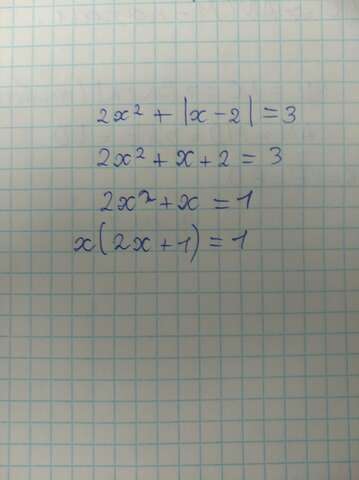 2x² + |x - 2| = 3
2x² + x + 2 = 3
2x² + x = 1
x(2x + 1) = 1